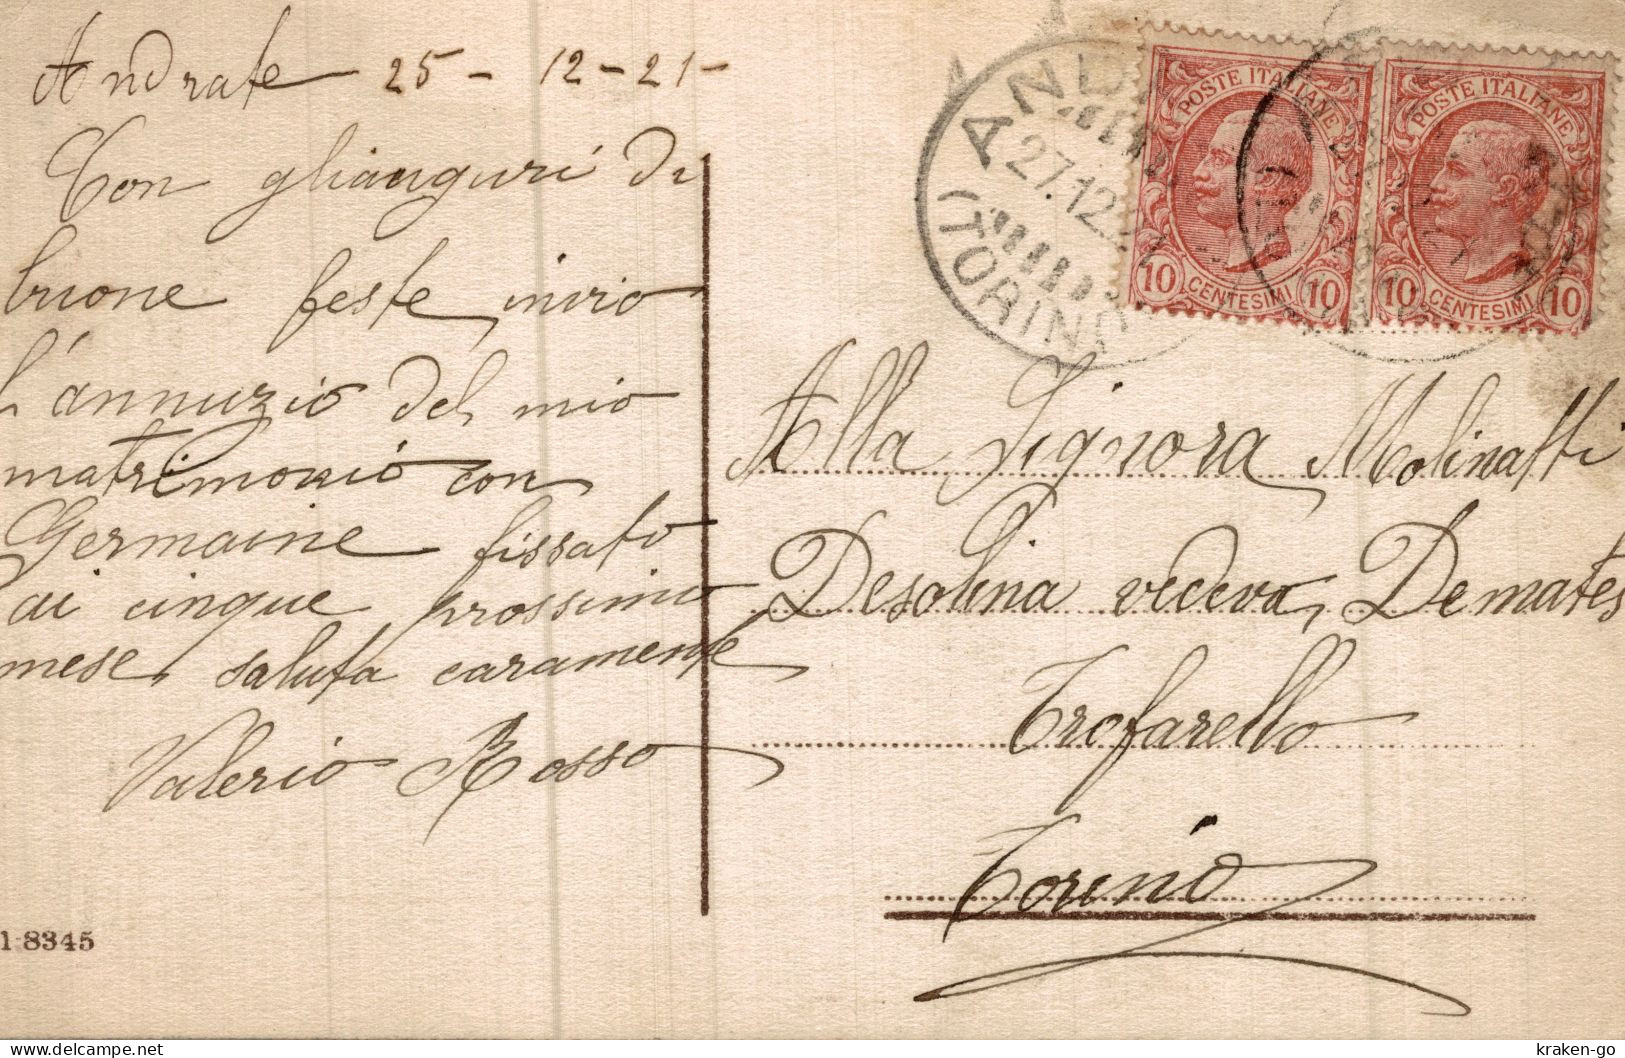 Andrate 25-12-21-
Con gli auguri di
buone feste, invio
l'annuzio del mio
matrimonio con
Germaine fissato
ai cinque prossimo
mese, saluta caramente
Valerio Rosso
1 8345
(TORINO)
27.12.
POSTE ITALIANE
10 CENTESIMI 10
POSTE ITALIANE
10 CENTESIMI 10
Alla Signora Molinatti
Desolina vedeva, De mates
Trofarello
Torino
delcampe.net
kraken-go